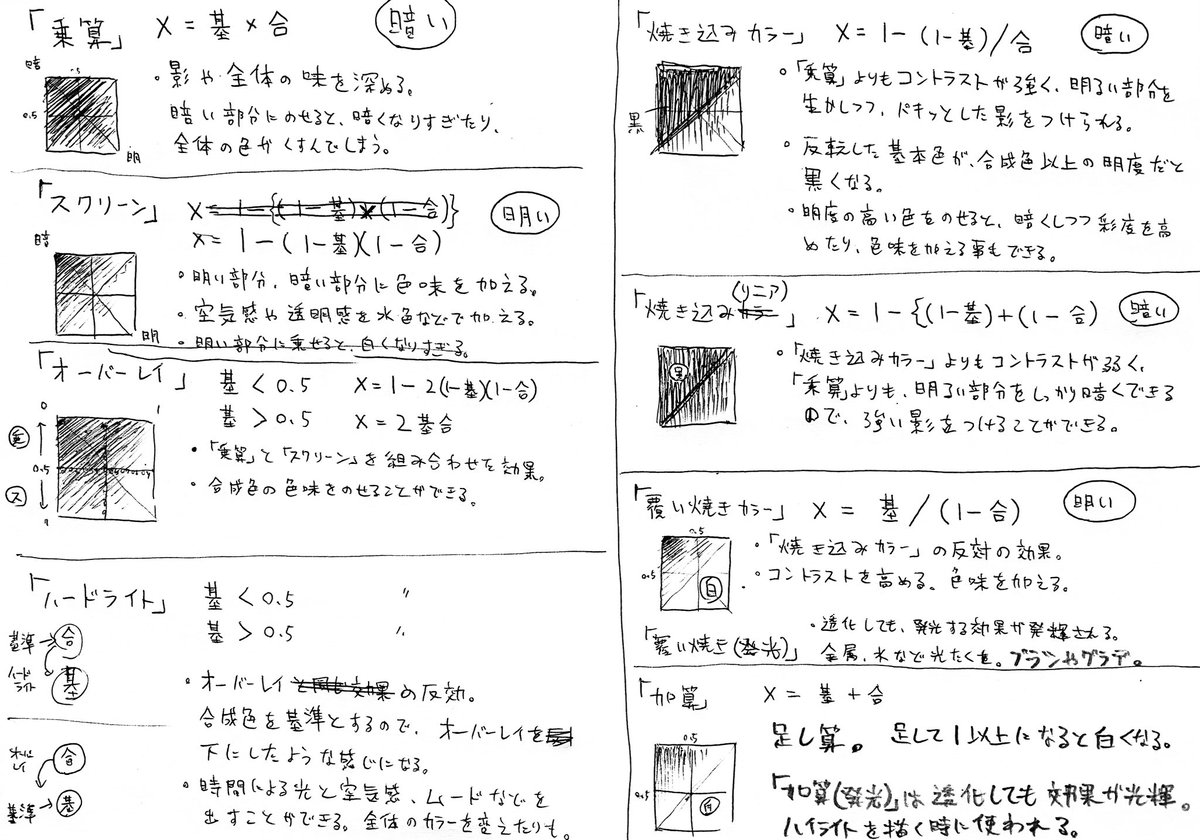 「乗算」 X = 基 × 合 暗い
暗
0.5
0.5
明
・影や全体の味を深める。
暗い部分にのせると、暗くなりすぎたり、
全体の色がくすんでしまう。
「スクリーン」 X = 1-{(1-基)×(1-合)} 明い
X = 1-(1-基)(1-合)
暗
明
・明い部分、暗い部分に色味を加える。
・空気感や透明感を水色などで加える。
・明い部分に乗せると、白くなりすぎる。
「オーバーレイ」 基 < 0.5 X=1-2(1-基)(1-合)
基 > 0.5 X=2基合
0 1
乗
0.5
ス
・「乗算」と「スクリーン」を組み合わせた効果。
・合成色の色味をのせることができる。
「ハードライト」 基 < 0.5 〃
基 > 0.5 〃
基準→合
ハードライト 基
・オーバーレイと同じ効果の反効。
合成色を基準とするので、オーバーレイを
下にしたような感じになる。
オーバーレイ 合
基準→基
・時間による光と空気感、ムードなどを
出すことができる。全体のカラーを変えたりも。
「焼き込みカラー」 X = 1-(1-基)/合 暗い
黒
・「乗算」よりもコントラストが強く、明るい部分を
生かしつつ、パキッとした影をつけられる。
・反転した基本色が、合成色以上の明度だと
黒くなる。
・明度の高い色をのせると、暗くしつつ彩度を高
めたり、色味を加える事もできる。
「焼き込みカラー(リニア)」 X = 1-{(1-基)+(1-合) 暗い
黒
・「焼き込みカラー」よりもコントラストが弱く、
「乗算」よりも、明るい部分をしっかり暗くできる
ので、強い影をつけることができる。
「覆い焼きカラー」 X = 基/(1-合) 明い
0.5
0.5
白
・「焼き込みカラー」の反対の効果。
・コントラストを高める、色味を加える。
・透化しても、発光する効果が発輝される。
「覆い焼き(発光)」 金属、水など光たくを。ブラシやグラデ。
「加算」 X = 基 + 合
0.5
0.5
白
足し算。 足して1以上になると白くなる。
「加算(発光)」は透化しても効果が光輝。
ハイライトを描く時に使われる。